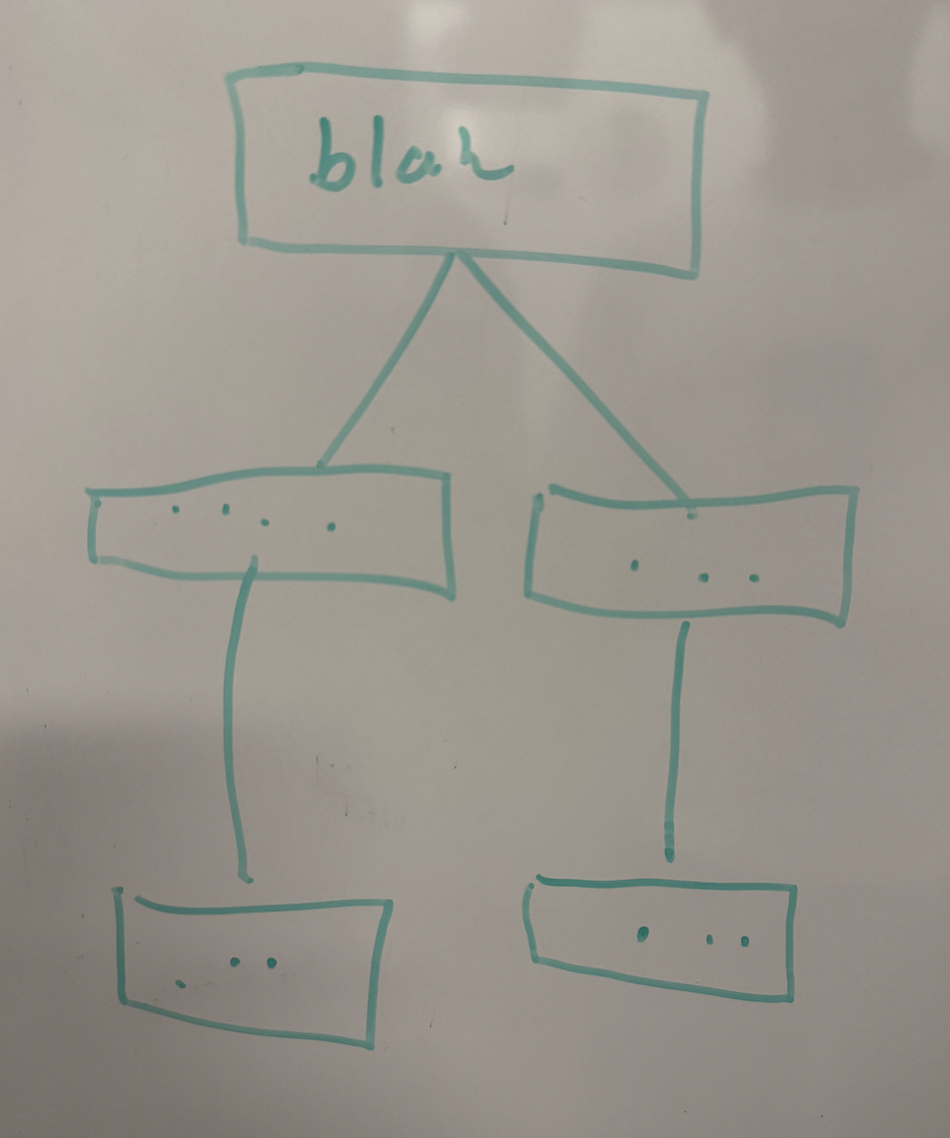 blah
....
...
...
...